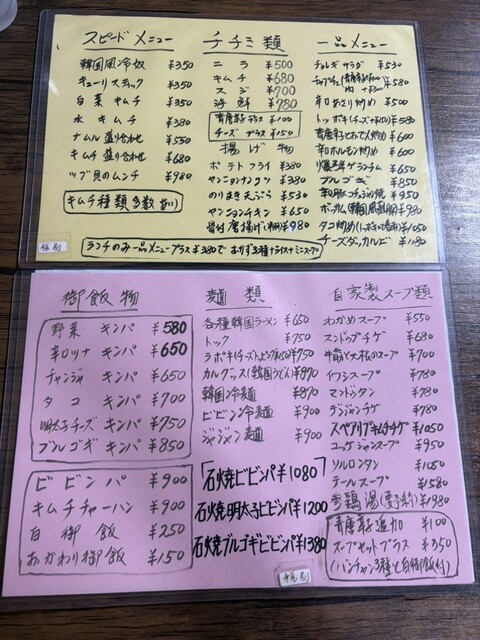 スピードメニュー
韓国風冷奴 ¥350
キューリスティック ¥350
白菜キムチ ¥350
水キムチ ¥380
ナムル盛り合わせ ¥550
キムチ盛り合わせ ¥680
ツブ貝のムンチ ¥980
キムチ種類多数あり
チヂミ類
ニラ ¥500
キムチ ¥680
スジ ¥700
海鮮 ¥780
青唐辛子プラス ¥100
チーズプラス ¥150
揚げ物
ポテトフライ ¥380
ヤンニョンナゲツ ¥380
のりまき天ぷら ¥530
ヤンニョンチキン ¥650
骨付唐揚げ ¥980
一品メニュー
チョレギサラダ ¥530
チャプチェ ¥580
辛口あさり炒め ¥500
トッポキ(チーズ+¥150) ¥580
¥600
辛口ホルモン炒め ¥600
ケランチム ¥650
プルゴギ ¥850
¥950
ポッサム ¥980
タコ炒め ¥980
チーズダッカルビ ¥1180
ランチのみ一品メニュープラス¥380でおかず3種+ライス+ミニスープ
税別
御飯物
野菜キンパ ¥580
辛口ツナキンパ ¥650
チャンジャキンパ ¥650
タコキンパ ¥700
明太子チーズキンパ ¥750
プルゴギキンパ ¥850
ビビンパ ¥900
キムチチャーハン ¥900
白御飯 ¥250
おかわり御飯 ¥150
麺類
各種韓国ラーメン ¥650
トック ¥750
ラポキ(チーズトッピング¥150) ¥750
カルグッス(韓国うどん) ¥890
韓国冷麺 ¥870
ビビン冷麺 ¥900
ジャジャン麺 ¥900
石火焼ビビンパ ¥1080
石火焼明太子ビビンパ ¥1200
石火焼プルゴギビビンパ ¥1380
自家製スープ類
わかめスープ ¥550
スンドゥブチゲ ¥680
牛筋と大根のスープ ¥700
イワシスープ ¥780
マンドゥタン ¥780
テンジャンチゲ ¥780
スペアリブキムチチゲ ¥1050
ユッケジャンスープ ¥950
ソルロンタン ¥1050
テールスープ ¥1580
参鶏湯(要予約) ¥1980
青唐辛子追加 ¥100
スープセットプラス ¥350
(バンチャン3種と白御飯付)
税別